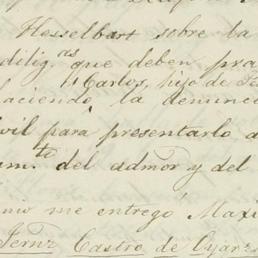 Hesselbart sobre la
dilig.as que deben pra
Carlos, hijo de Fe
haciendo la denunci
vil para presentarlo a
am.to del admor y del
me entregó Maxi
Fernz Castro de Oyarz